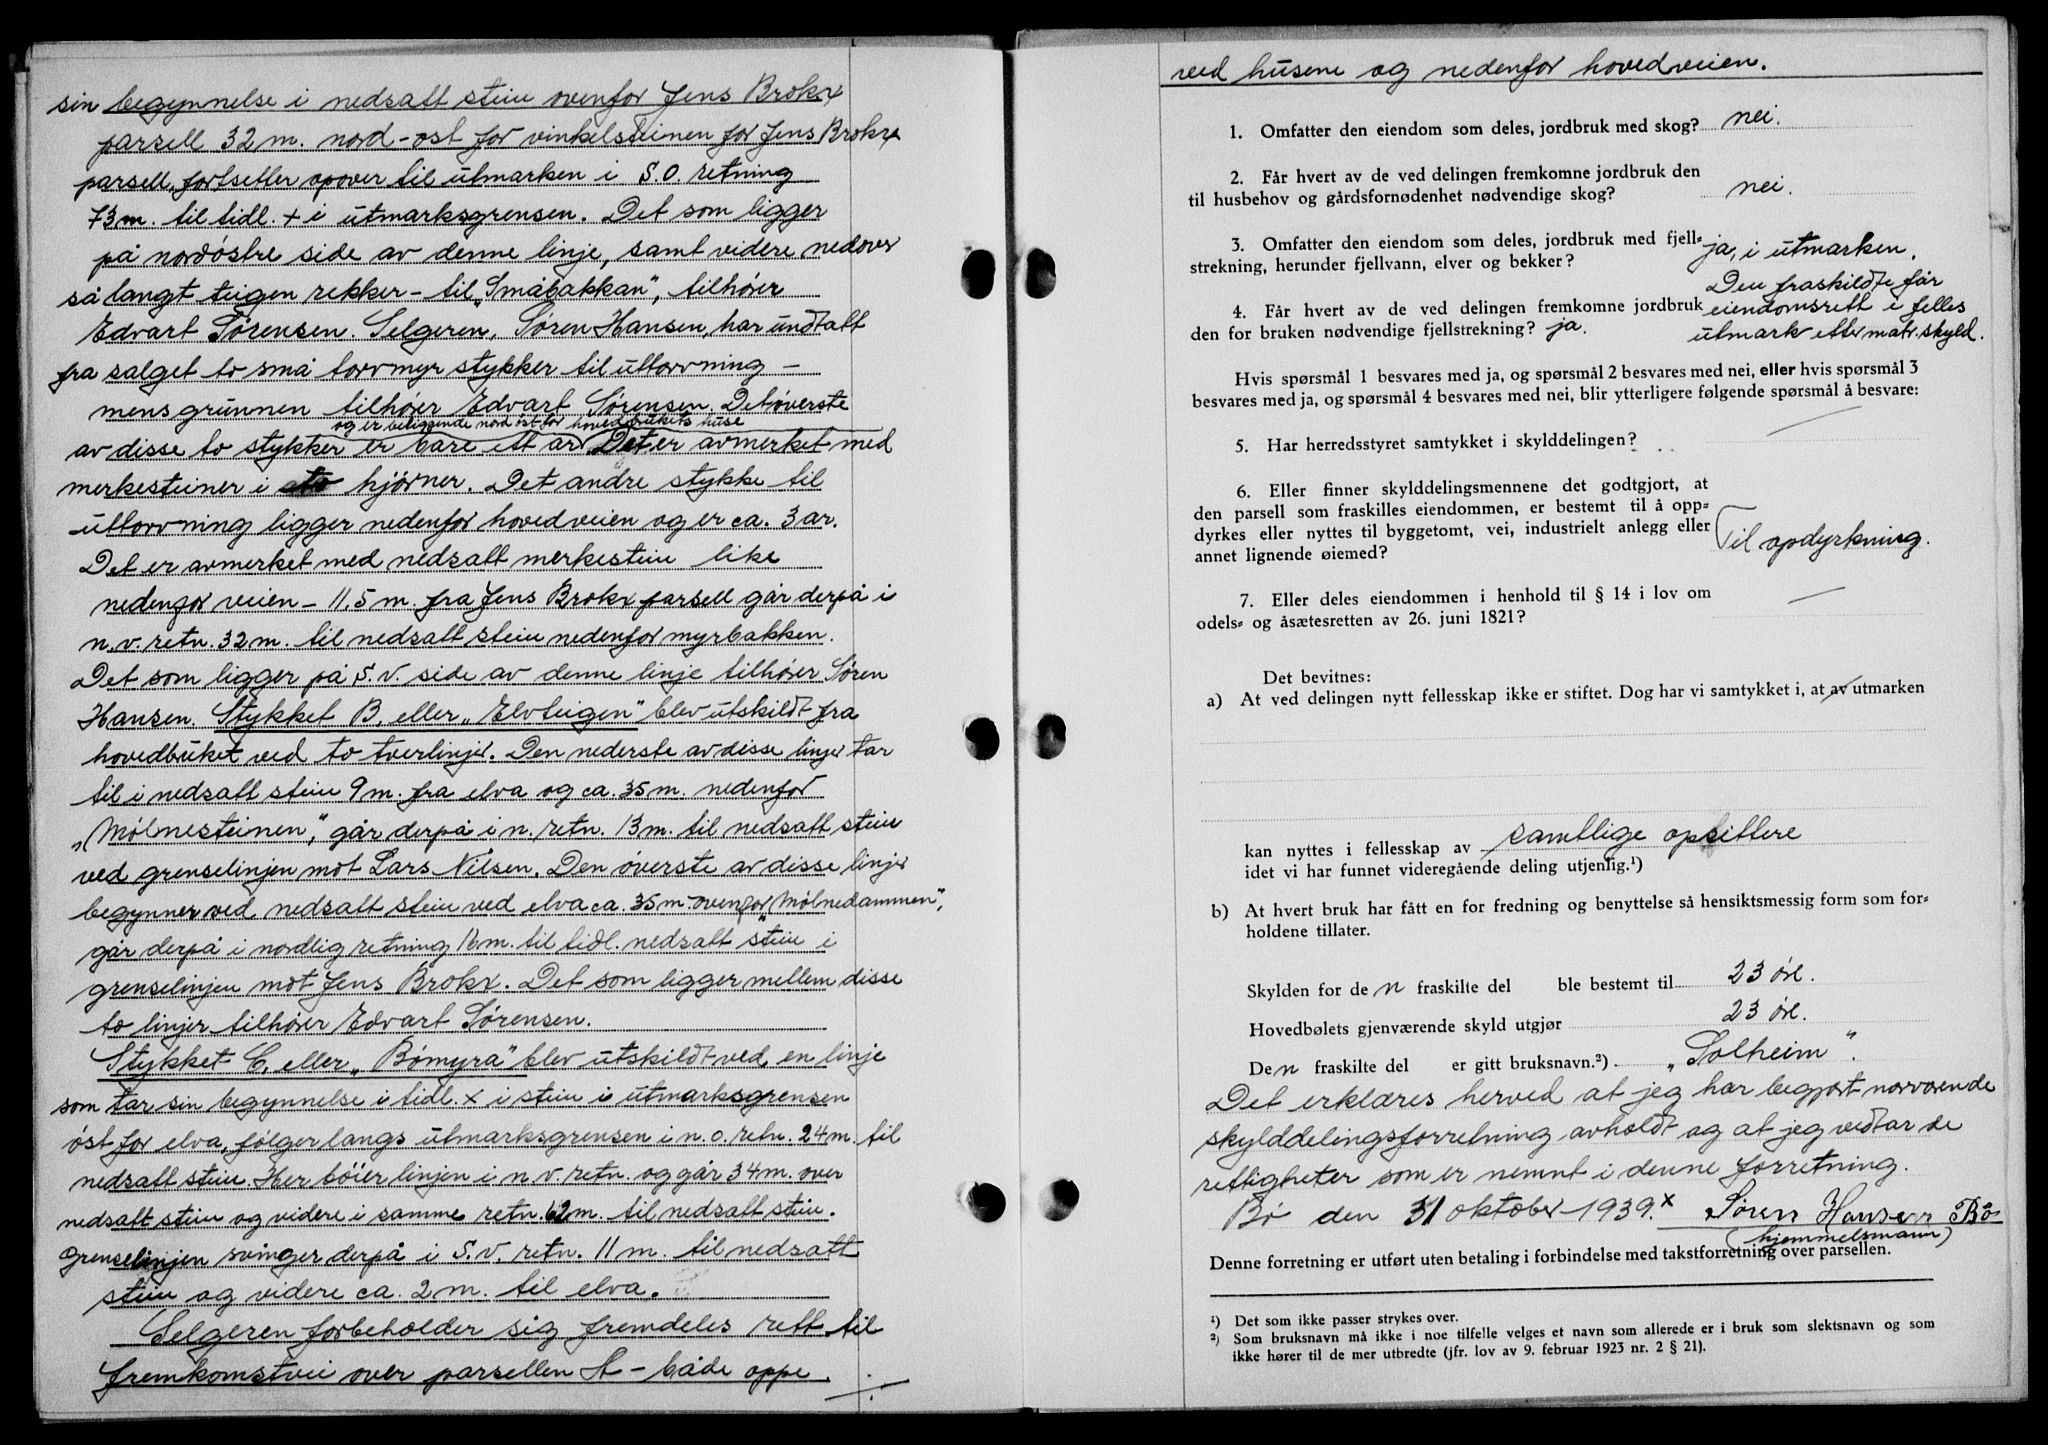 sin begynnelse i nedsatt stein ovenfor Jens Brokx
parsell 32 m. nord-ost for vinkelsteinen for Jens Brokx
parsell, fortsetter opover til utmarken i S.O. retning
73 m. til tidl. x i utmarksgrensen. Det som ligger
på nordøstre side av denne linje, samt videre nedover
så langt teigen rekker - til "Småbakkan", tilhører
Edvart Sørensen. Selgeren, Søren Hansen, har undtatt
fra salget to små torvmyr stykker til uttorvning -
mens grunnen tilhører Edvart Sørensen. Det øverste
og er beliggende nord øst for hovedbrukets huse
av disse to stykker er bare ett ar. Det er avmerket med
merkesteiner i hjørner. Det andre stykke til
uttorvning ligger nedenfor hovedveien og er ca. 3 ar.
Det er avmerket med nedsatt merkestein like
nedenfor veien - 11,5 m. fra Jens Brokx parsell går derpå i
n.v. retn. 32 m. til nedsatt stein nedenfor myrbakken.
Det som ligger på S.V. side av denne linje tilhører Søren
Hansen. Stykket B. eller "Elvteigen" blev utskildt fra
hovedbruket ved to tverlinjer. Den nederste av disse linjer tar
til i nedsatt stein 9 m. fra elva og ca. 35 m. nedenfor
"Mølnesteinen", går derpå i n. retn. 13 m. til nedsatt stein
ved grenselinjen mot Lars Nilsen. Den øverste av disse linjer
begynner ved nedsatt stein ved elva ca. 35 m. ovenfor "Mølnedammen",
går derpå i nordlig retning 16 m. til tidl. nedsatt stein i
grenselinjen mot Jens Brokx. Det som ligger mellem disse
to linjer tilhører Edvart Sørensen.
Stykket C. eller "Bømyra" blev utskildt ved en linje
som tar sin begynnelse i tidl. x i stein i utmarksgrensen
øst for elva, følger langs utmarksgrensen i n.o. retn. 24 m. til
nedsatt stein. Her bøier linjen i n.v. retn. og går 34 m. over
nedsatt stein og videre i samme retn. 62 m. til nedsatt stein.
Grenselinjen svinger derpå i S.V. retn. 11 m. til nedsatt
stein og videre ca. 2 m. til elva.
Selgeren forbeholder sig fremdeles rett til
fremkomstvei over parsellen A - både oppe ./.
ved husene og nedenfor hovedveien.
1. Omfatter den eiendom som deles, jordbruk med skog? nei.
2. Får hvert av de ved delingen fremkomne jordbruk den
til husbehov og gårdsfornødenhet nødvendige skog? nei.
3. Omfatter den eiendom som deles, jordbruk med fjell-
strekning, herunder fjellvann, elver og bekker? ja, i utmarken.
4. Får hvert av de ved delingen fremkomne jordbruk
den for bruken nødvendige fjellstrekning? ja.
Den fraskildte får
eiendomsrett i felles
utmark etter matr. skyld.
Hvis spørsmål 1 besvares med ja, og spørsmål 2 besvares med nei, eller hvis spørsmål 3
besvares med ja, og spørsmål 4 besvares med nei, blir ytterligere følgende spørsmål å besvare:
5. Har herredsstyret samtykket i skylddelingen? —
6. Eller finner skylddelingsmennene det godtgjort, at
den parsell som fraskilles eiendommen, er bestemt til å opp-
dyrkes eller nyttes til byggetomt, vei, industrielt anlegg eller
annet lignende øiemed? Til opdyrkning.
7. Eller deles eiendommen i henhold til § 14 i lov om
odels- og åsætesretten av 26. juni 1821? —
Det bevitnes:
a) At ved delingen nytt fellesskap ikke er stiftet. Dog har vi samtykket i, at av utmarken
kan nyttes i fellesskap av samtlige opsittere
idet vi har funnet videregående deling utjenlig.¹)
b) At hvert bruk har fått en for fredning og benyttelse så hensiktsmessig form som for-
holdene tillater.
Skylden for de n fraskilte del ble bestemt til 23 øre.
Hovedbølets gjenværende skyld utgjør 23 øre.
De n fraskilte del er gitt bruksnavn.²) "Solheim".
Det erklæres herved at jeg har begjært nærværende
skylddelingsforretning avholdt og at jeg vedtar de
rettigheter som er nemnt i denne forretning.
Bø den 31 oktober 1939. x Søren Hansen Bø
(hjemmelsmann)
Denne forretning er utført uten betaling i forbindelse med takstforretning over parsellen.
¹) Det som ikke passer strykes over.
²) Som bruksnavn må ikke i noe tilfelle velges et navn som allerede er i bruk som slektsnavn og som
ikke hører til de mer utbredte (jfr. lov av 9. februar 1923 nr. 2 § 21).